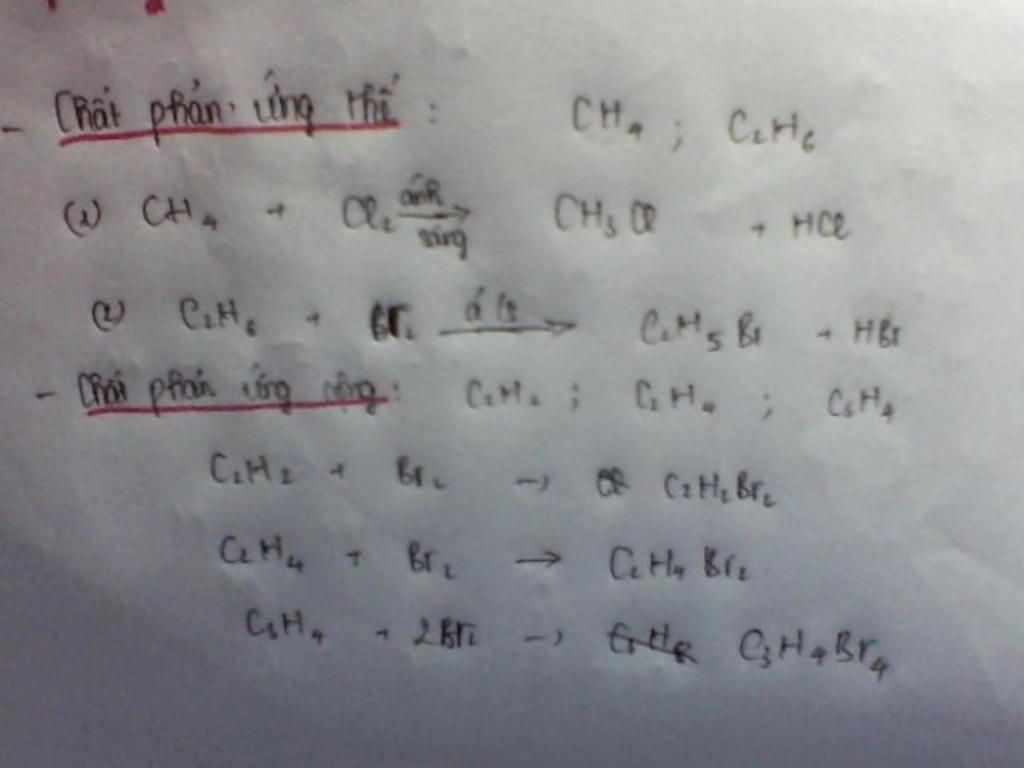 - Chất phản ứng thế : CH4 ; C2H6
(1) CH4 + Cl2 ánh sáng → CH3Cl + HCl
(2) C2H6 + Br2 → C2H5Br + HBr
- Chất phản ứng cộng : C2H2 ; C2H4 ; C3H4
C2H2 + Br2 → C2H2Br2
C2H4 + Br2 → C2H4Br2
C3H4 + 2Br2 → C3H4Br4